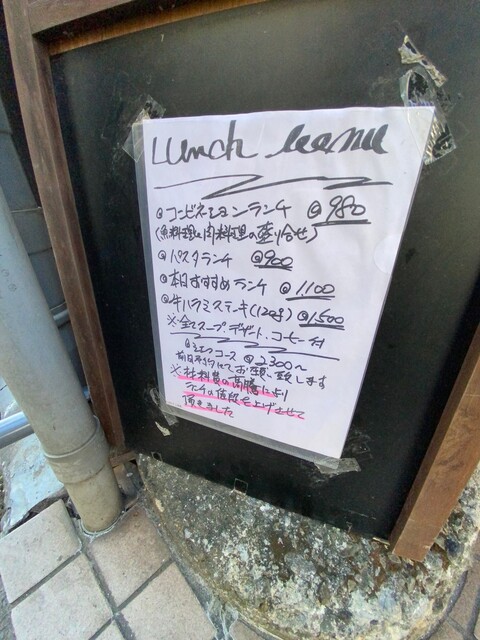 Lunch menu
◎コンビネーションランチ @980
(魚料理と肉料理の盛り合せ)
◎パスタランチ @900
◎本日おすすめランチ @1100
◎牛ハラミステーキ(120g) @1500
※全てスープ デザート コーヒー付
コース @2300〜
前日予約にてお願い致します
※材料費の高騰により
ランチの値段を上げさせて
頂きました